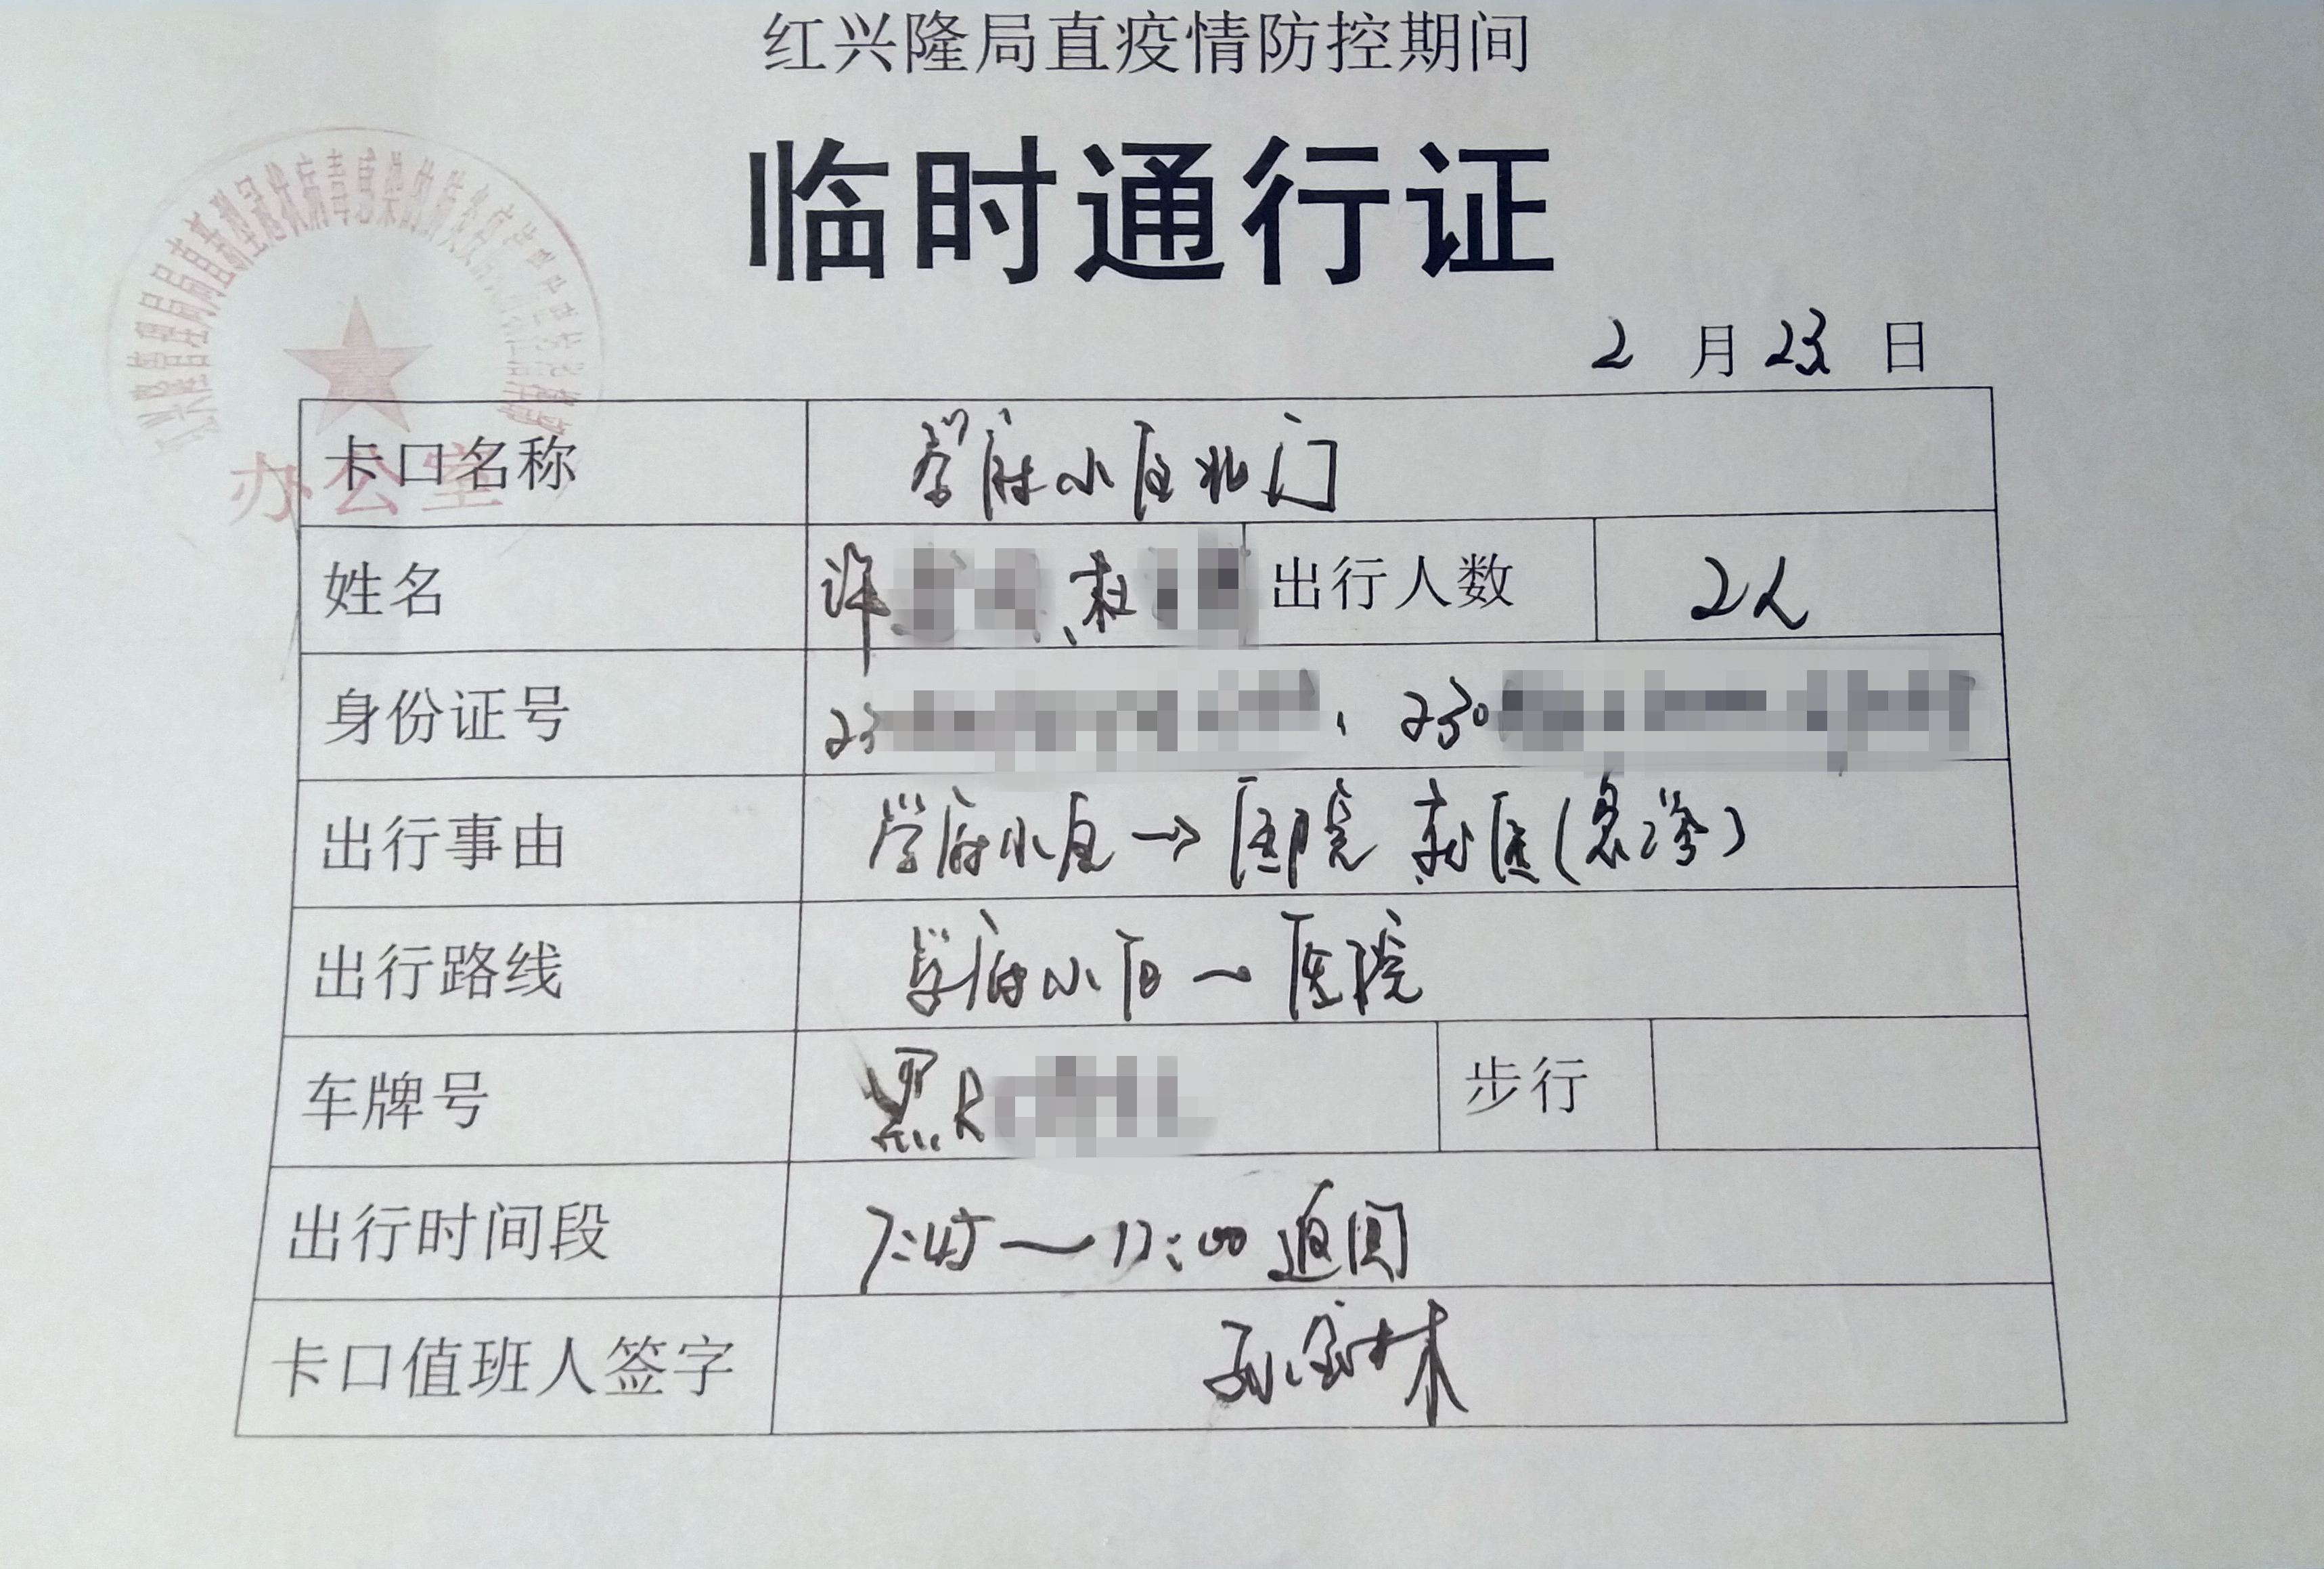 红兴隆局直疫情防控期间
临时通行证
2 月 23 日
办公室
卡口名称 学府小区北门
姓名 许 、 出行人数 2人
身份证号 23 、 230
出行事由 学府小区→医院 就医(急诊)
出行路线 学府小区—医院
车牌号 黑R 步行
出行时间段 7:45—12:00 返回
卡口值班人签字 孙 林